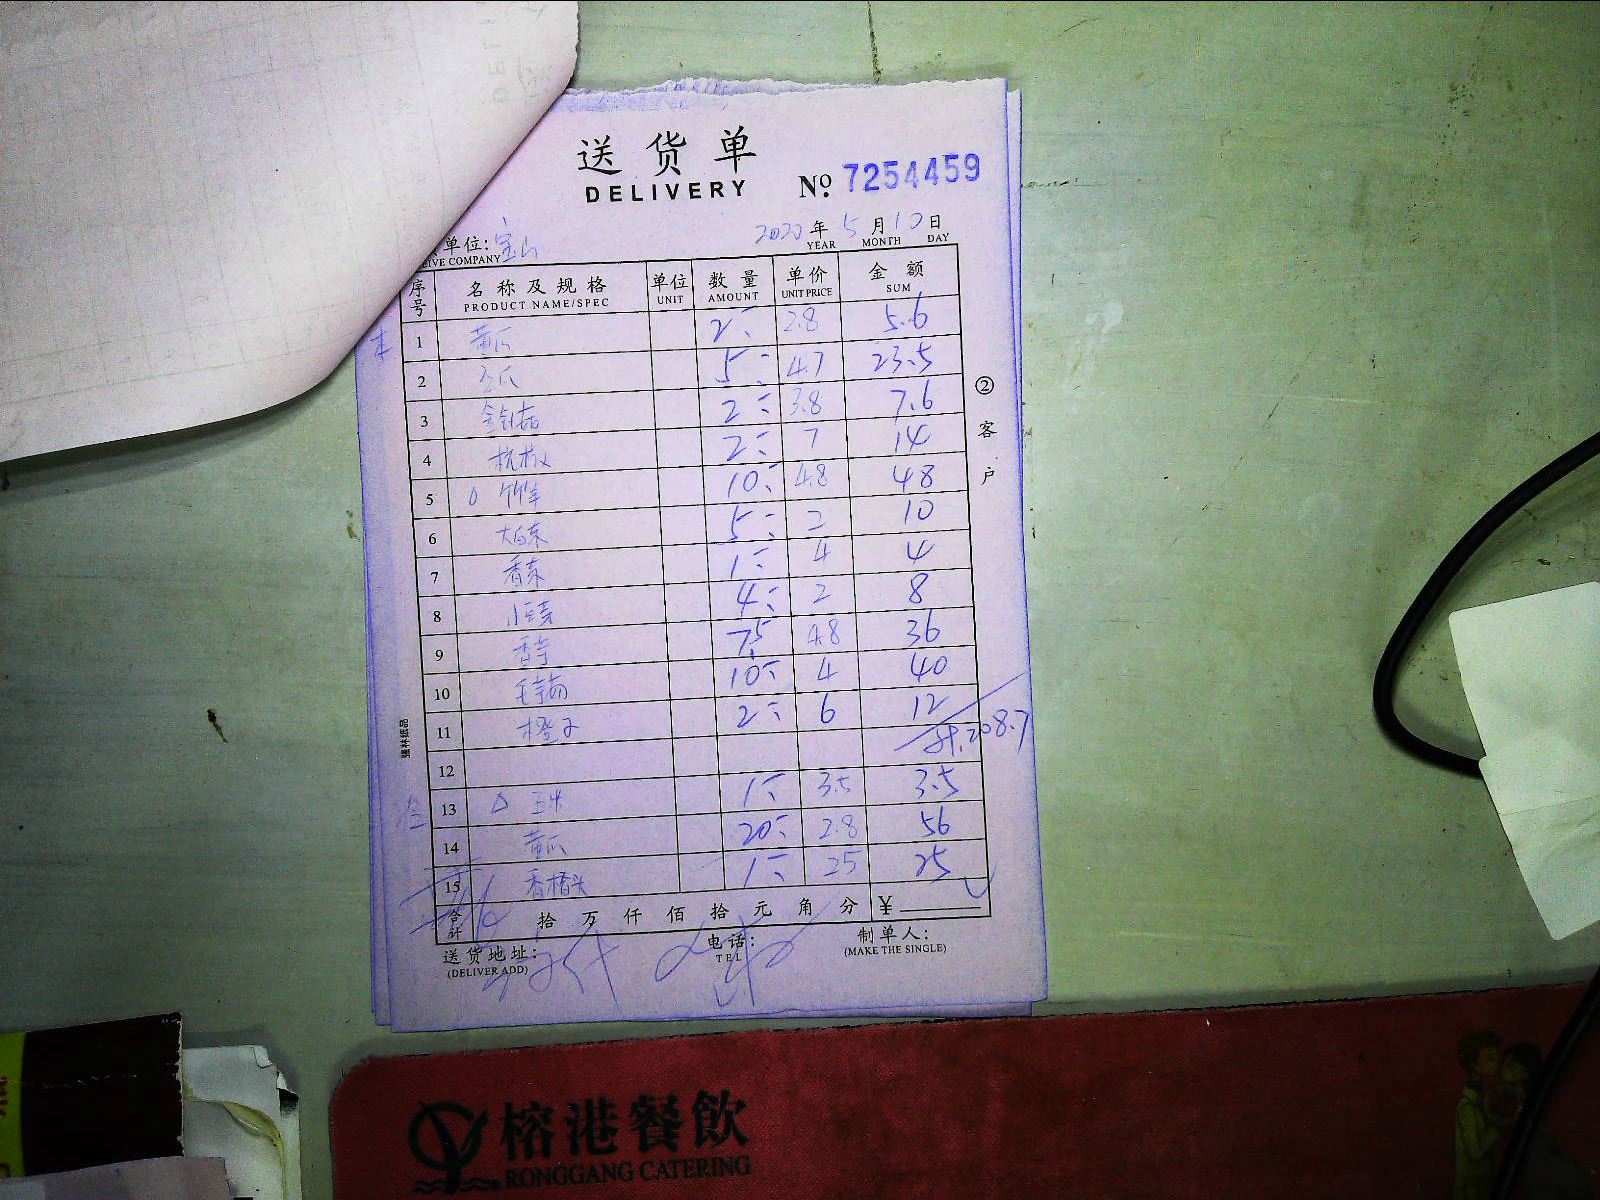 送货单
DELIVERY
№ 7254459
单位: 宝山
2020年5月10日
COMPANY YEAR MONTH DAY
序号 名称及规格 单位 数量 单价 金额
PRODUCT NAME/SPEC UNIT AMOUNT UNIT PRICE SUM
1 黄瓜 2 2.8 5.6
2 5 4.7 23.5
3 2 3.8 7.6
4 杭椒 2 7 14
5 10 4.8 48
6 大白菜 5 2 10
7 香菜 1 4 4
8 4 2 8
9 香芋 7.5 4.8 36
10 10 4 40
11 橙子 2 6 12
12 计.208.7
13 玉米 1 3.5 3.5
14 黄瓜 20 2.8 56
15 1 25 25
合计 拾万仟佰拾元角分 ¥
送货地址: 电话: 制单人:
(DELIVER ADD) TEL (MAKE THE SINGLE)
②客户
强林纸品
榕港餐飲
RONGGANG CATERING